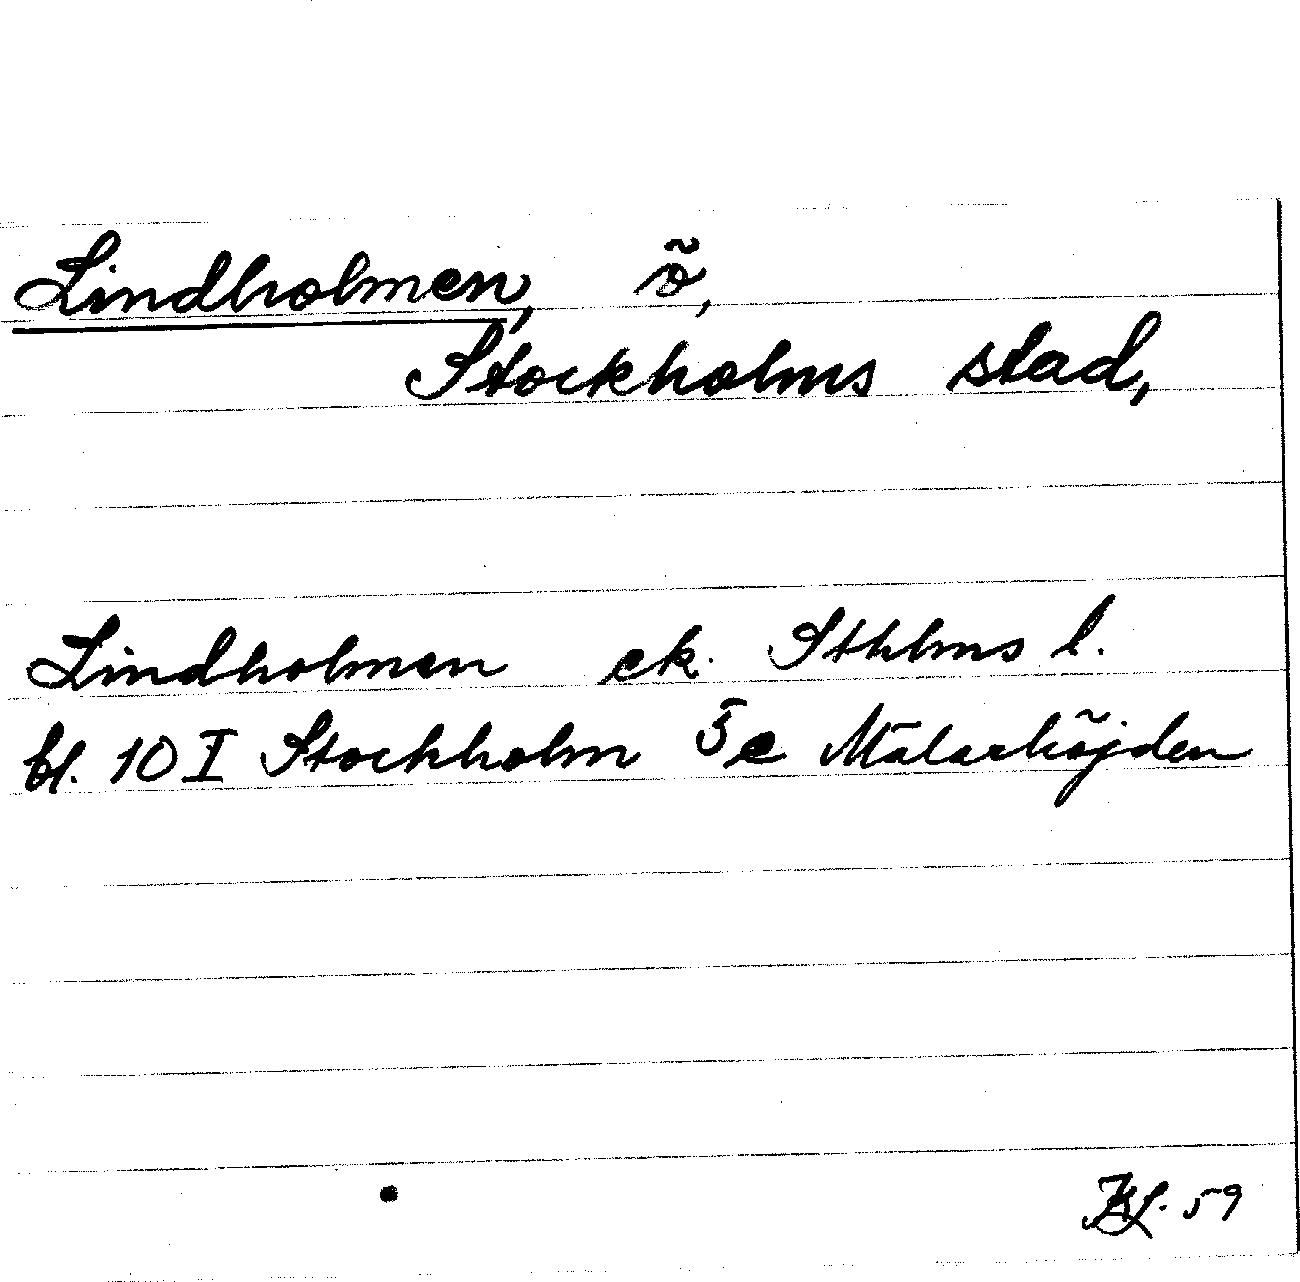 Lindholmen, ö,
Stockholms stad,
Lindholmen ek. Sthlms l.
bl. 10 I Stockholm 5e Mälarhöjden
59